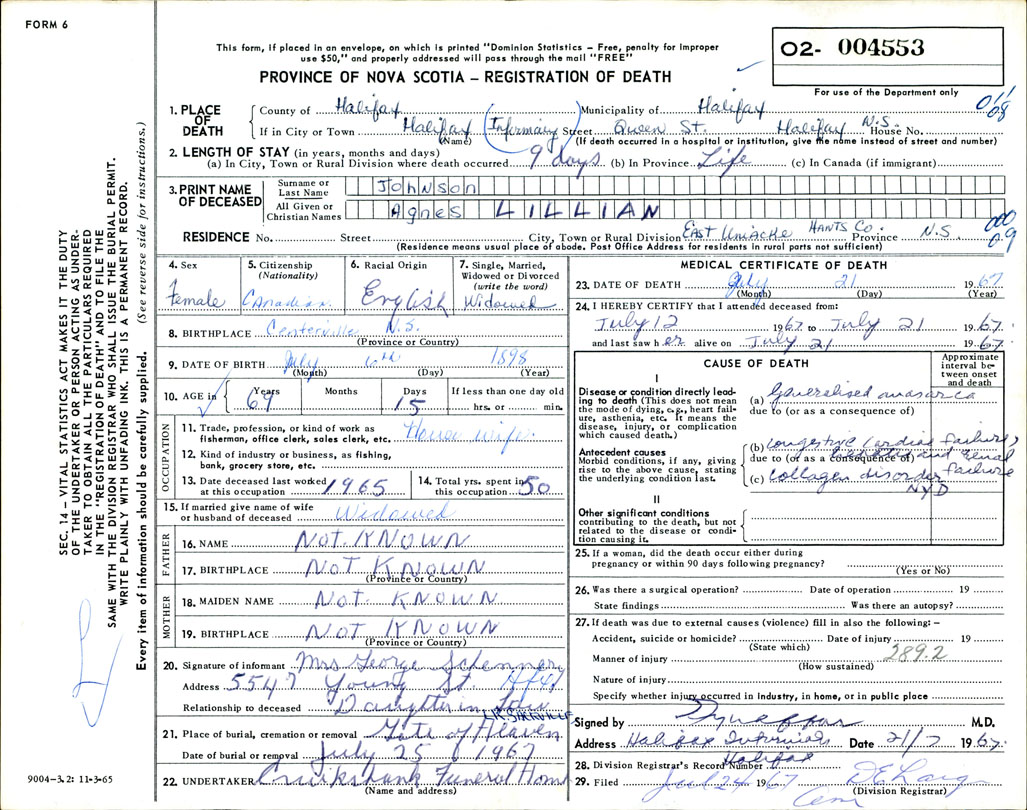 FORM 6
This form, if placed in an envelope, on which is printed "Dominion Statistics – Free, penalty for Improper
use $50," and properly addressed will pass through the mail "FREE"
PROVINCE OF NOVA SCOTIA – REGISTRATION OF DEATH
02- 004553
For use of the Department only
1. PLACE OF DEATH
County of Halifax Municipality of Halifax
If in City or Town Halifax Infirmary Street Queen St. Halifax N.S. House No.
(Name) (If death occurred in a hospital or institution, give the name instead of street and number)
2. LENGTH OF STAY (in years, months and days)
(a) In City, Town or Rural Division where death occurred 9 days (b) In Province Life (c) In Canada (if immigrant)
3. PRINT NAME OF DECEASED
Surname or Last Name Johnson
All Given or Christian Names Agnes LILLIAN
RESIDENCE No. Street City, Town or Rural Division East Uniacke HANTS Co. Province N.S.
(Residence means usual place of abode. Post Office Address for residents in rural parts not sufficient)
000
09
4. Sex Female
5. Citizenship (Nationality) Canadian
6. Racial Origin English
7. Single, Married, Widowed or Divorced (write the word) Widowed
8. BIRTHPLACE Centerville N.S.
(Province or Country)
9. DATE OF BIRTH July 1898
(Month) (Day) (Year)
10. AGE in Years 69 Months Days 15 If less than one day old hrs. or min.
OCCUPATION
11. Trade, profession, or kind of work as fisherman, office clerk, sales clerk, etc. House wife
12. Kind of industry or business, as fishing, bank, grocery store, etc.
13. Date deceased last worked at this occupation 1965
14. Total yrs. spent in this occupation 50
15. If married give name of wife or husband of deceased Widowed
FATHER
16. NAME Not KNOWN
17. BIRTHPLACE Not KNOWN
(Province or Country)
MOTHER
18. MAIDEN NAME Not KNOWN
19. BIRTHPLACE Not KNOWN
(Province or Country)
20. Signature of informant Mrs George
Address 5547 Young St Hfx
Relationship to deceased Daughter in law
21. Place of burial, cremation or removal Gate of Heaven
Date of burial or removal July 25 1967
22. UNDERTAKER Cruikshank Funeral Home
(Name and address)
MEDICAL CERTIFICATE OF DEATH
23. DATE OF DEATH July 21 1967
(Month) (Day) (Year)
24. I HEREBY CERTIFY that I attended deceased from:
July 12 1967 to July 21 1967
and last saw her alive on July 21 1967
CAUSE OF DEATH
Approximate interval between onset and death
I
Disease or condition directly leading to death (This does not mean the mode of dying, e.g., heart failure, asthenia, etc. it means the disease, injury, or complication which caused death.)
(a) Generalised anasarca
due to (or as a consequence of)
Antecedent causes
Morbid conditions, if any, giving rise to the above cause, stating the underlying condition last.
(b) congestive cardiac failure,
due to (or as a consequence of) and renal failure
(c) collagen disorder
NYD
II
Other significant conditions
contributing to the death, but not related to the disease or condition causing it.
25. If a woman, did the death occur either during
pregnancy or within 90 days following pregnancy?
(Yes or No)
26. Was there a surgical operation? Date of operation 19
State findings Was there an autopsy?
27. If death was due to external causes (violence) fill in also the following: –
Accident, suicide or homicide? Date of injury 19
(State which)
289.2
Manner of injury
(How sustained)
Nature of injury
Specify whether injury occurred in Industry, in home, or in public place
Signed by M.D.
Address Halifax Infirmary Date 21/7 1967
28. Division Registrar's Record Number Halifax
29. Filed Jul 24 1967
(Division Registrar)
SEC. 14 – VITAL STATISTICS ACT MAKES IT THE DUTY
OF THE UNDERTAKER OR PERSON ACTING AS UNDER-
TAKER TO OBTAIN ALL THE PARTICULARS REQUIRED
IN THE "REGISTRATION OF DEATH" AND TO FILE THE
SAME WITH THE DIVISION REGISTRAR WHO SHALL ISSUE THE BURIAL PERMIT.
WRITE PLAINLY WITH UNFADING INK. THIS IS A PERMANENT RECORD.
Every item of information should be carefully supplied. (See reverse side for instructions.)
9004–3.2: 11-3-65